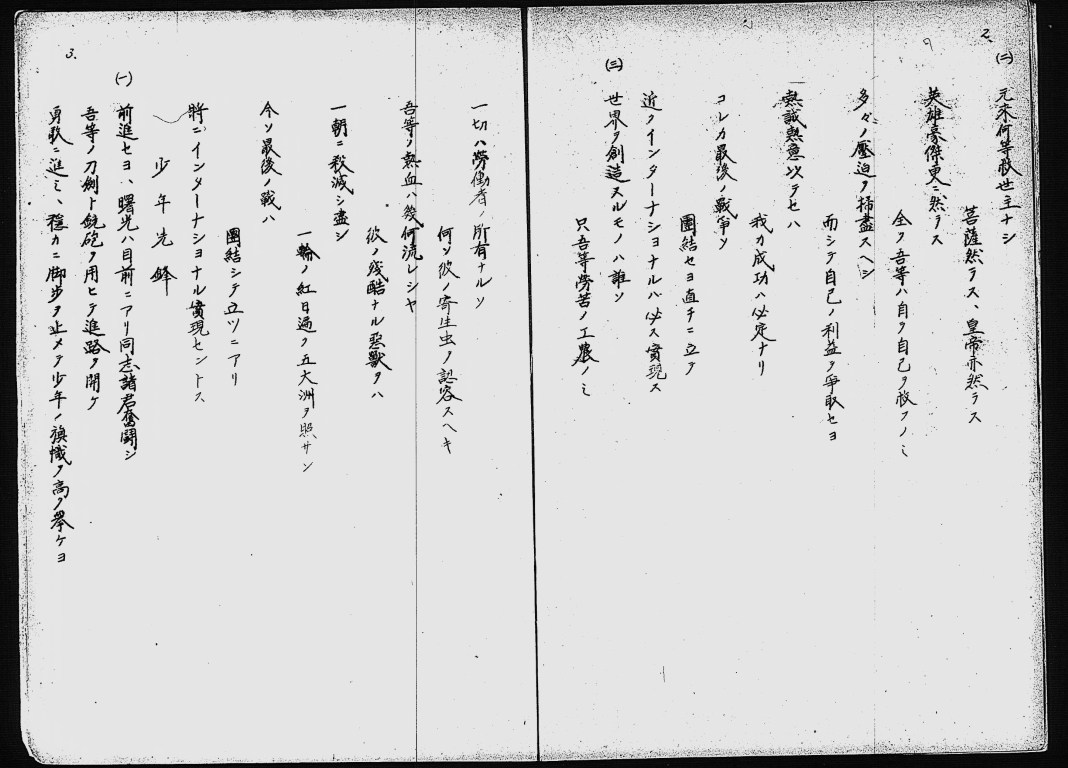 2.
(二) 元来何等救世主ナシ
菩薩然ラス、皇帝亦然ラス
英雄豪傑更ニ然ラス
全ク吾等ハ自ラ自己ヲ救フノミ
多々ノ壓迫ヲ掃盡スヘシ
而シテ自己ノ利益ヲ爭取セヨ
熱誠熱意以テセハ
我カ成功ハ必定ナリ
コレカ最後ノ戰爭ソ
團結セヨ直チニ立テ
近クインターナショナルハ必ス實現ス
(三) 世界ヲ創造スルモノハ誰ソ
只吾等勞苦ノ工農ノミ
一切ハ勞働者ノ所有ナルソ
何ソ彼ノ寄生虫ノ認容スヘキ
吾等ノ熱血ハ幾何流レシヤ
彼ノ残酷ナル惡獸ヲハ
一朝ニ殺滅シ盡シ
一輪ノ紅日遍ク五大洲ヲ照サン
今ソ最後ノ戰ハ
團結シテ立ツニアリ
將ニインターナショナル實現セントス
少年先鋒
(一) 前進セヨ、曙光ハ目前ニアリ同志諸君奮鬪シ
吾等ノ刀劍ト銃砲ヲ用ヒテ進路ヲ開ケ
勇敢ニ進ミ、穏カニ脚步ヲ止メテ少年ノ旗幟ヲ高ク擧ケヨ
3.